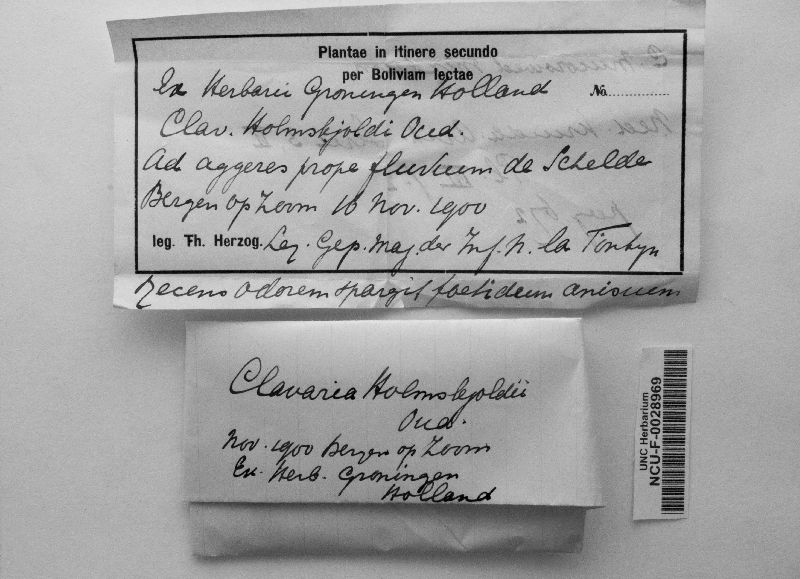 Plantae in itinere secundo
per Boliviam lectae
Ex Herbarii Groningen Holland No.
Clav. Holmskjoldi Oud.
Ad aggeres prope fluvium de Schelde
Bergen op Zoom 16 Nov. 1900
leg. Th. Herzog. Leg. Gep. Maj. der Inf. N. la Fontyn
Recens odorem spargit foetidum anisuum
Clavaria Holmskjoldii
Oud.
Nov. 1900 Bergen op Zoom
Ex. Herb. Groningen
Holland
UNC Herbarium
NCU-F-0028969